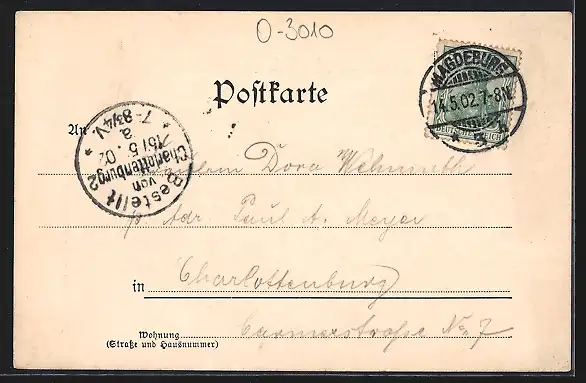 O-3010
MAGDEBURG
14.5.02.7-8N.
DEUTSCHES REICH
Postkarte
An
Bestellt
von
Charlottenburg 2
15/5.02.
a.
7-8¾V.
Dora
p. Adr. Paul A. Meyer
in Charlottenburg
Wohnung
(Straße und Hausnummer)
Carmerstraße No. 7